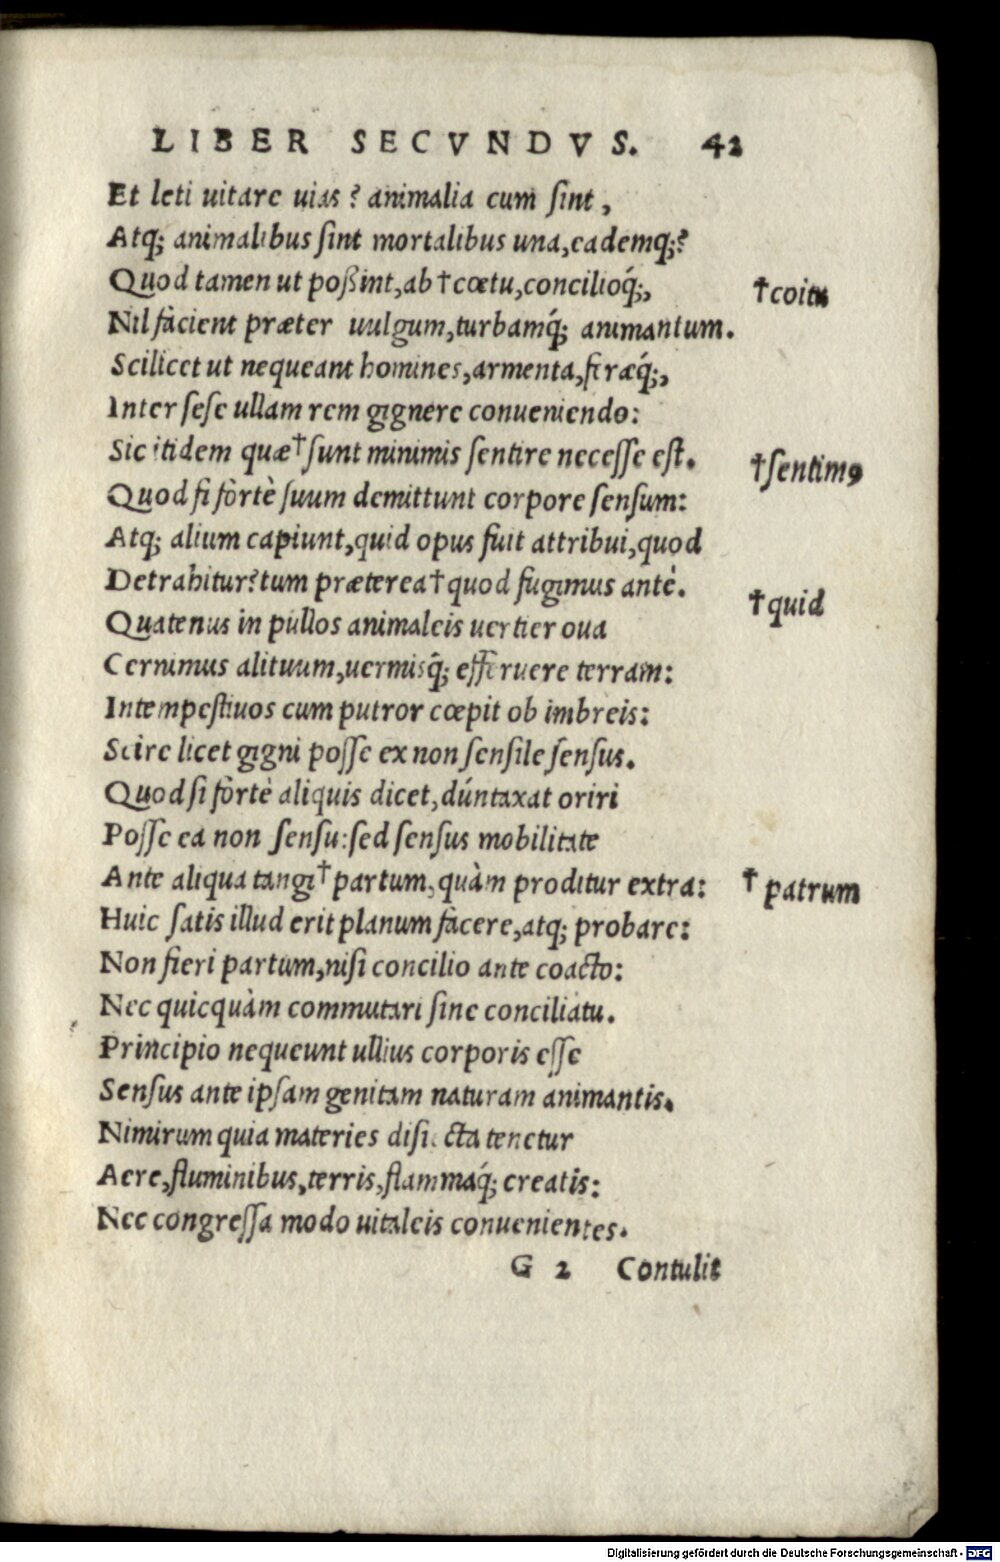 LIBER SECVNDVS. 42
Et leti uitare uias? animalia cum sint,
Atq; animalibus sint mortalibus una, eademq;?
Quod tamen ut poßint, ab † cœtu, concilioq́;, † coitu
Nil facient præter uulgum, turbamq́; animantum.
Scilicet ut nequeant homines, armenta, feræq́;,
Inter sese ullam rem gignere conueniendo:
Sic itidem quæ † sunt minimis sentire necesse est. † sentimꝰ
Quod si fortè suum demittunt corpore sensum:
Atq; alium capiunt, quid opus fuit attribui, quod
Detrahitur? tum præterea † quod fugimus antè. † quid
Quatenus in pullos animaleis uertier oua
Cernimus alituum, uermisq́; efferuere terram:
Intempestiuos cum putror cœpit ob imbreis:
Scire licet gigni posse ex non sensile sensus.
Quod si fortè aliquis dicet, dúntaxat oriri
Posse ea non sensu: sed sensus mobilitate
Ante aliqua tangi † partum, quàm proditur extra: † patrum
Huic satis illud erit planum facere, atq; probare:
Non fieri partum, nisi concilio ante coacto:
Nec quicquàm commutari sine conciliatu.
Principio nequeunt ullius corporis esse
Sensus ante ipsam genitam naturam animantis.
Nimirum quia materies disiecta tenetur
Aere, fluminibus, terris, flammaq́; creatis:
Nec congressa modo uitaleis conuenientes.
G 2 Contulit
Digitalisierung gefördert durch die Deutsche Forschungsgemeinschaft - DFG